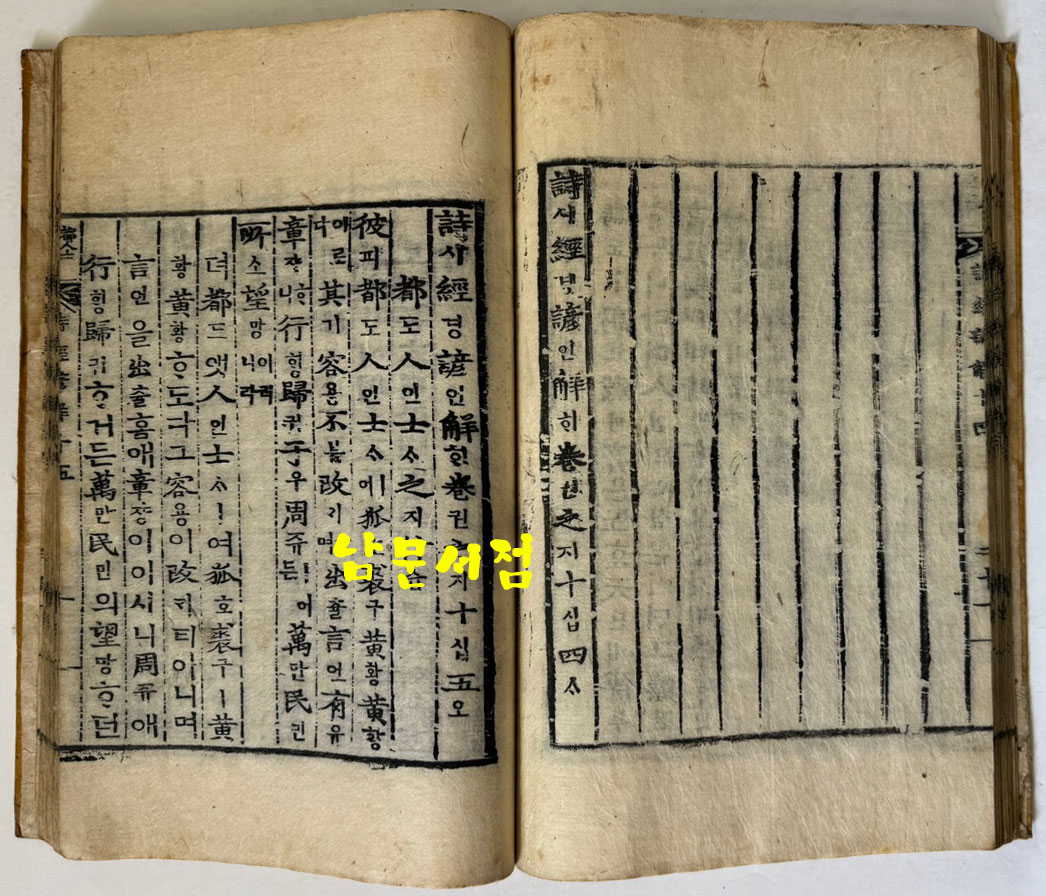 詩시經경諺언解ᄒᆡ卷권之지十십四ᄉᆞ
詩經諺解十四
詩시經경諺언解ᄒᆡ卷권之지十십五오
都도人인士ᄉᆞ之지
彼피都도人인士ᄉᆞ에狐裘구黃황黃황
其기容용不블改ᄀᆡ며出츌言언有유
章쟝ᄒᆞ니行ᄒᆡᆼ歸귀于우周쥬든ㅣ어萬만民민
所소望망
뎌都도앳人인士ᄉᆞㅣ여狐호裘구ㅣ黃
황黃황ᄒᆞ도다그容용이改ᄀᆡ티아니며
言언을出츌홈애章쟝이이시니周쥬애
行ᄒᆡᆼ歸귀ᄒᆞ거든萬만民민의望망ᄒᆞ던
詩經諺解十五
一
남문서점